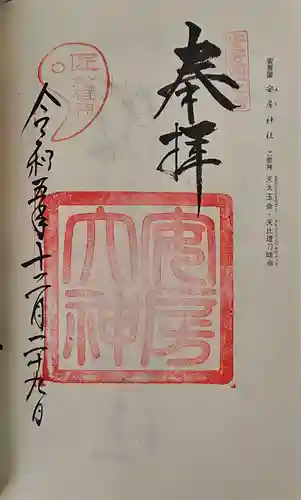 安房神社 ご祭神 天太玉命・天比理刀咩命
奉拝
安房
大神
令和五年十二月二十九日